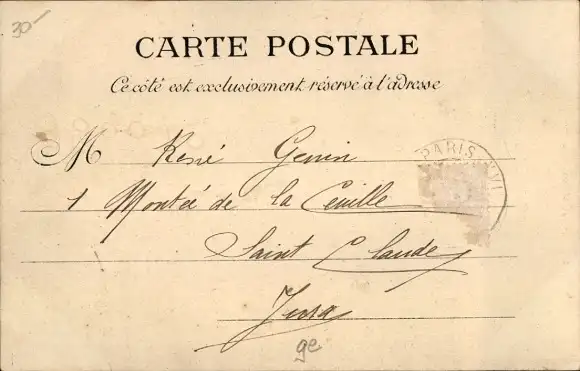 30-
CARTE POSTALE
Ce côté est exclusivement réservé à l'adresse
M René Genin
PARIS XVI
1 Montée de la Cueille
Saint Claude
Jura
ge